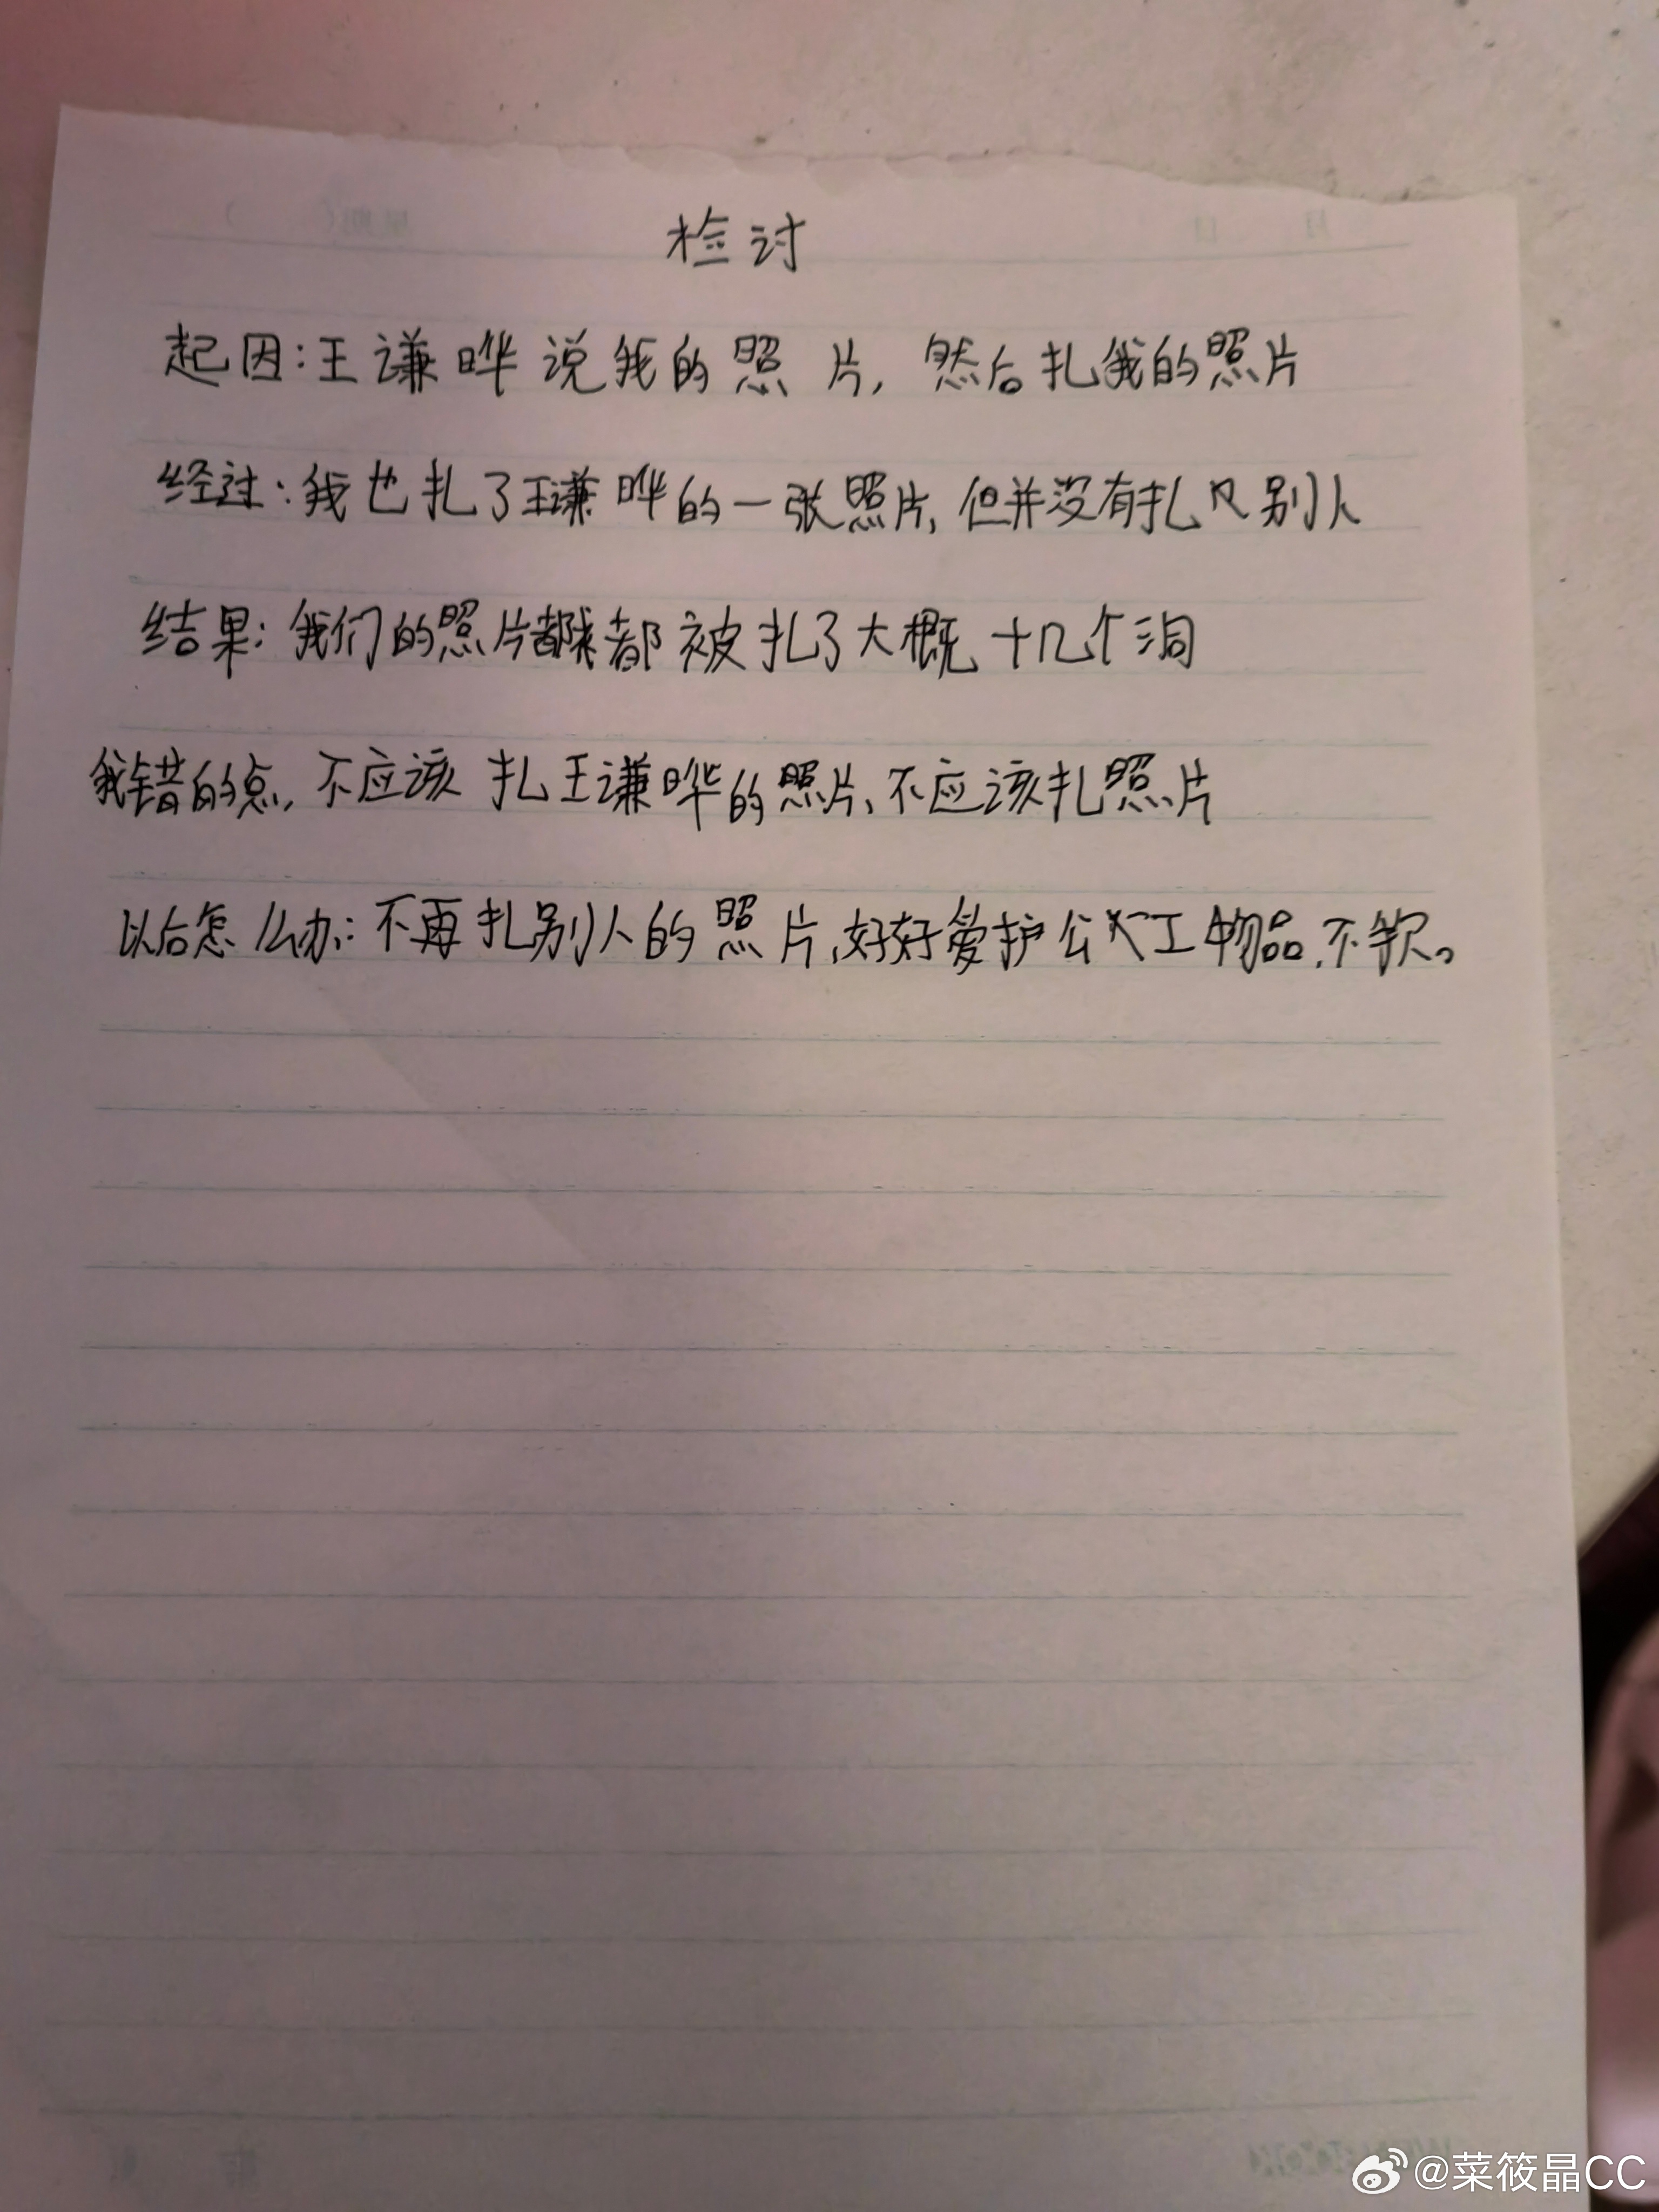 检讨
起因:王谦晔说我的照片,然后扎我的照片
经过:我也扎了王谦晔的一张照片,但并没有扎别人
结果:我们的照片都被扎了大概十几个洞
我错的点,不应该扎王谦晔的照片,不应该扎照片
以后怎么办:不再扎别人的照片,好好爱护公物品.不
@菜筱晶CC